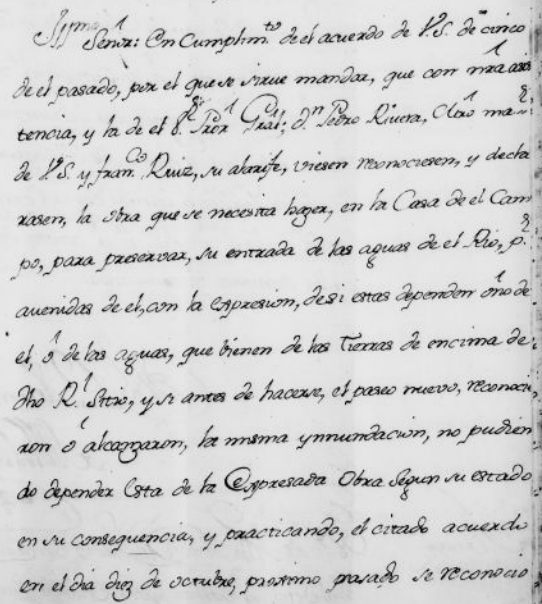 Yllmo
Señor: En Cumplimto de el acuerdo de V.S. de cinco
de el pasado, por el que se sirue mandar, que con nra asis
tencia, y la de el Sr Pror Gral; dn Pedro Rivera, Mro maor
de V.S. y franco Ruiz, su alarife, viesen reconociesen, y decla
rasen, la obra que se necesita hazer, en la Casa de el Cam
po, para preservar, su entrada de las aguas de el Rio, pr
auenidas de el, con la expresion, de si estas dependen ó no de
el, ó de las aguas, que bienen de las Tierras de encima de
dho Rl Sitio, y si antes de hacerse, el paseo nuevo, reconocie
ron ó alcanzaron, la misma ynnundacion, no pudien
do depender Esta de la Expresada Obra Segun su estado
en su consequencia, y practicando, el citado acuerdo
en el dia diez de octubre, proximo pasado se reconocio